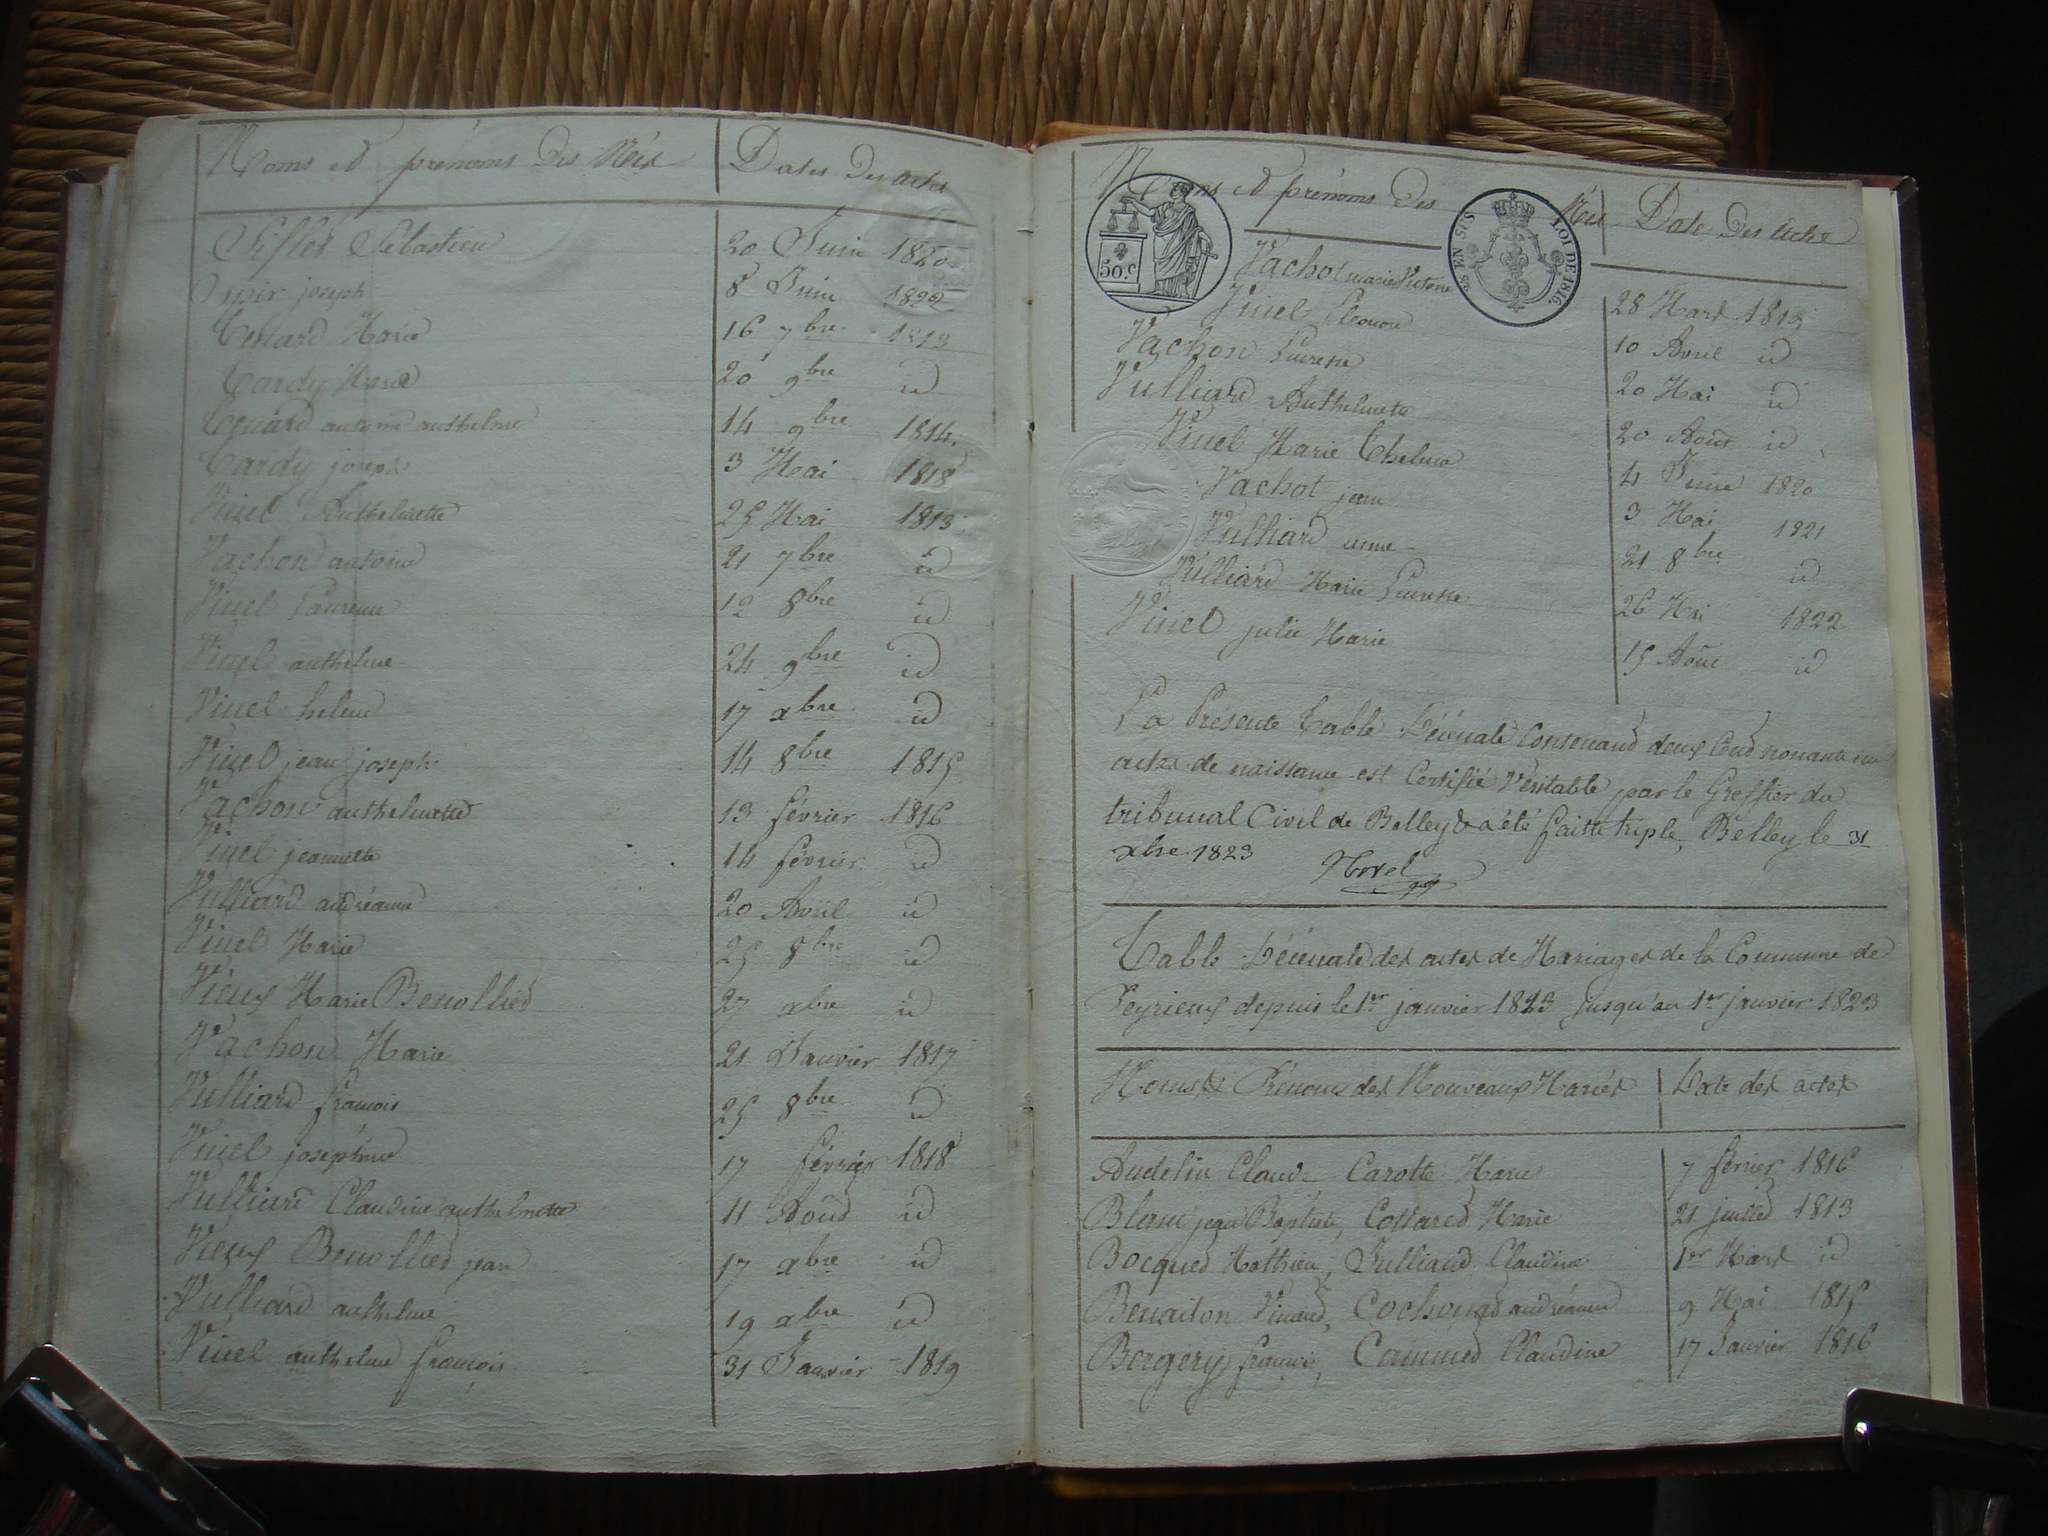 Noms et prénoms des Nés Dates des actes
Siflet Sébastien 20 Juin 1820
joseph 8 Juin 1822
Tenard Marie 16 7bre 1813
Tardy Marie 20 9bre id
Tenard anthelme 14 9bre 1814
Tardy joseph 3 Mai 1818
Vinel Anthelmette 25 Mai 1813
Vachon antoine 21 7bre id
Vinel Laurence 12 8bre id
Vinel anthelme 24 9bre id
Vinel helene 17 xbre id
Vinel jean joseph 14 8bre 1815
Vachon anthelmette 13 février 1816
Vinel jeannette 14 février id
Vulliard andréanne 20 Avril id
Vinel Marie 25 8bre id
Vieux Marie Benollied 27 xbre id
Vachon Marie 21 Janvier 1817
Vulliard francois 25 8bre id
Vinel joséphine 17 février 1818
Vulliard Claudine anthelmette 11 Aoud id
Vieux Benollied jean 17 xbre id
Vulliard anthelme 19 xbre id
Vinel anthelme francois 31 Janvier 1819
Noms et prénoms des Nés Date des actes
50.c
EN SUS
LOI DE 1816.
Vachot marie Victoire 28 Mars 1819
Vinel Eléonore 10 Avril id
Vachon Lucresse 20 Mai id
Vulliard Anthelmette 20 Aout id
Vinel Marie Thelme 4 Juin 1820
Vachot jean 3 Mai 1821
Vulliard anne 21 8bre id
Vulliard Marie Lucresse 26 Mai 1822
Vinel julie Marie 15 Aout id
La Présente Table Décénale Contenand deux Cend nonante un
actes de naissance est Certifié Véritable par le Greffier du
tribunal Civil de Belley & a été faitte triple, Belley le 31
xbre 1823
Table Décénale des actes de Mariages de la Commune de
Peyrieux depuis le 1er janvier 1813 jusqu'au 1er janvier 1823
Noms & Prénoms des Nouveaux Mariés Date des actes
Andelin Claude Carotte Marie 7 février 1816
Blanc jean Baptiste, Cottared Marie 21 juilled 1813
Bocqued Mathieu, Julliand Claudine 1er Mars id
Benaiton Vincend, Cochonad andréanne 9 Mai 1815
Borgery francois, Cammed Claudine 17 Janvier 1816